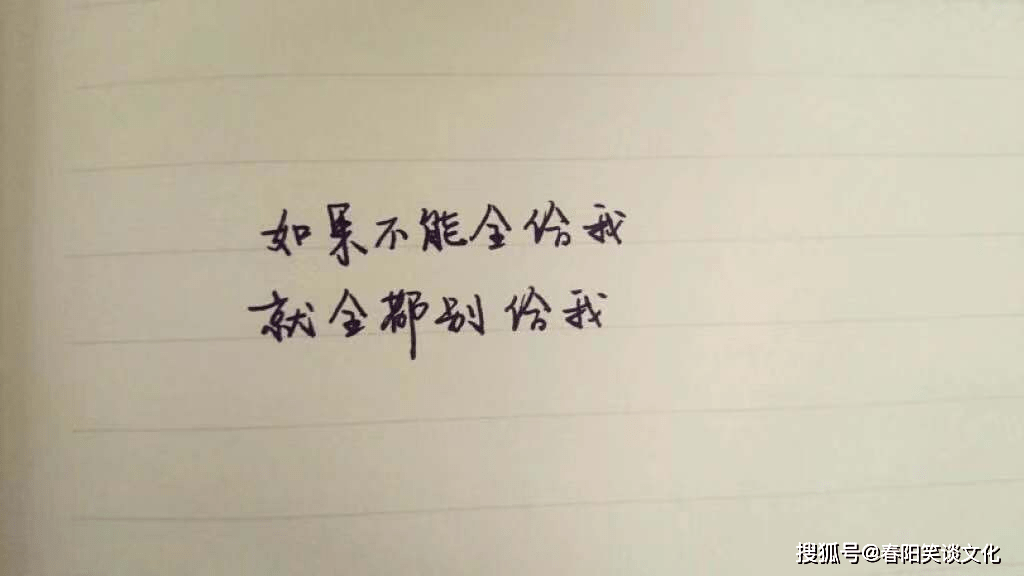 如果不能全给我
就全都别给我
搜狐号@春阳笑谈文化